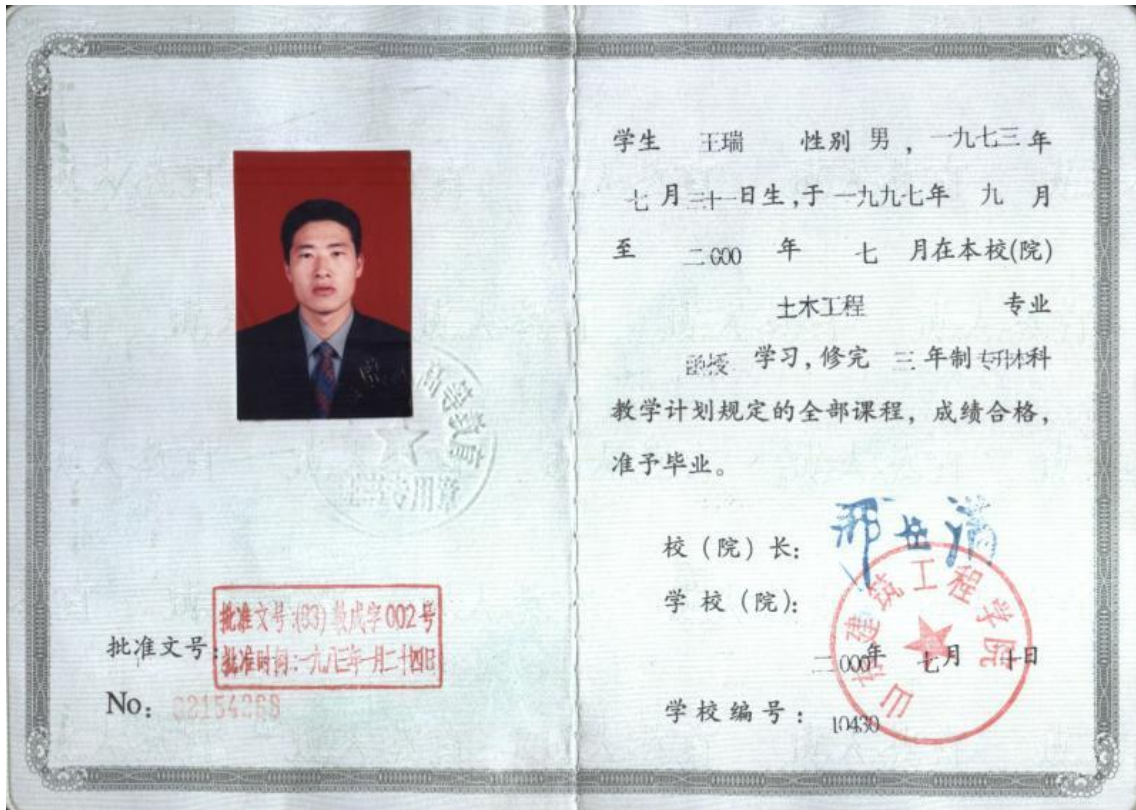 批准文号:
批准文号:(83)教成字002号
批准时间:一九八三年一月二十四日
No: 02154268
学生 王瑞 性别 男 , 一九七三 年
七 月 三十一 日生,于 一九九七年 九 月
至 二000 年 七 月在本校(院)
土木工程 专业
函授 学习,修完 三 年制 专升本科
教学计划规定的全部课程,成绩合格,
准予毕业。
校(院)长:
学校(院):
山东建筑工程学院
二000年 七月 十日
学校编号: 10430